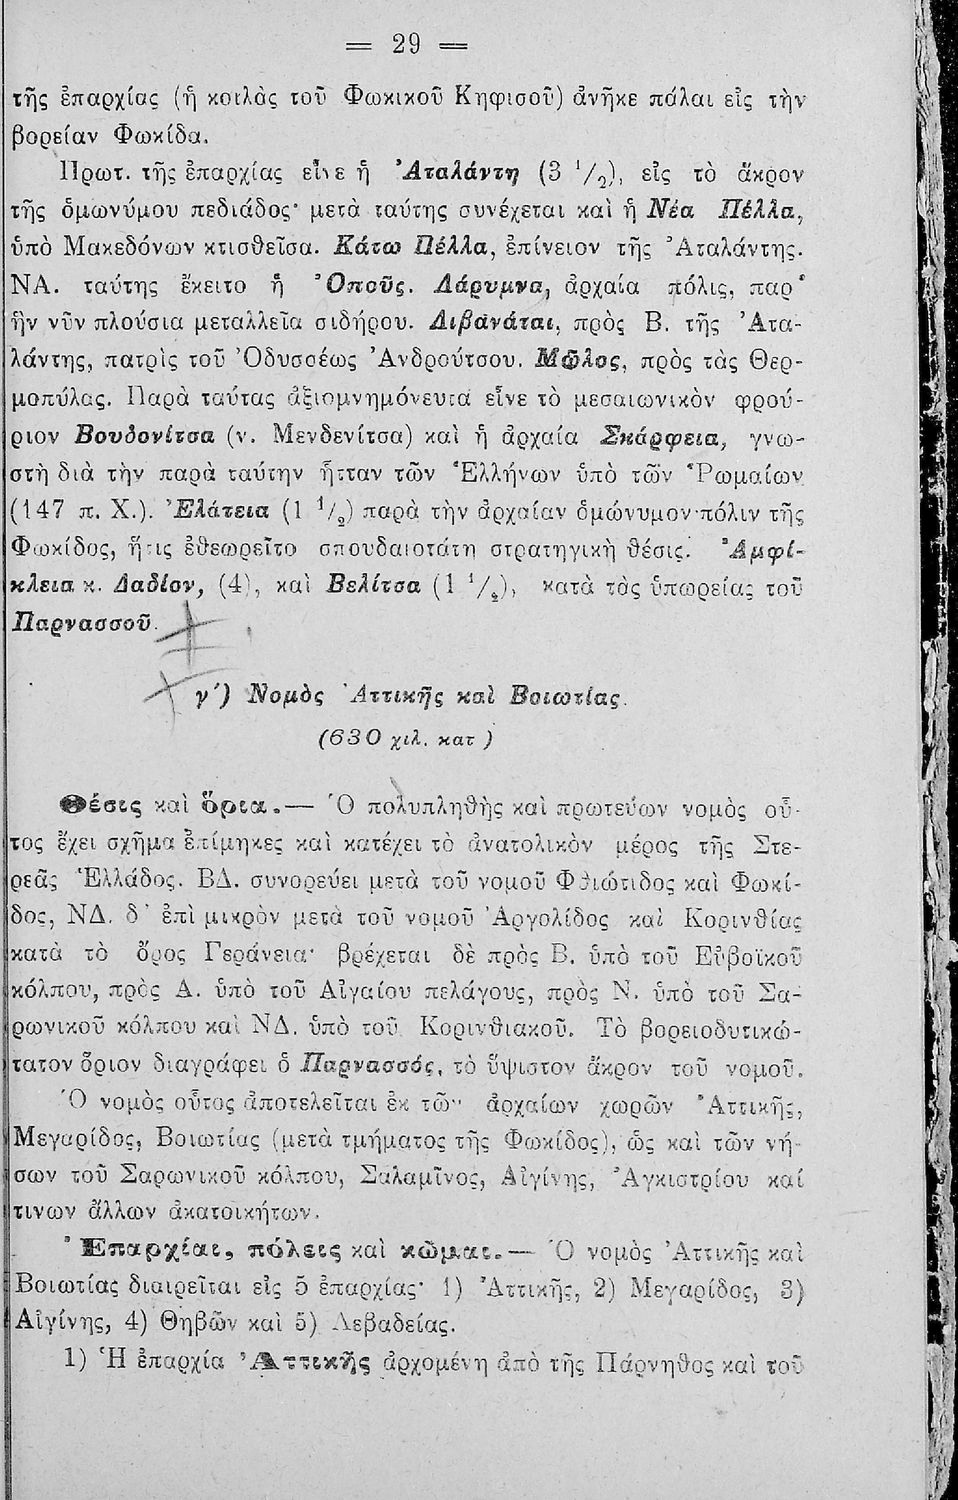 = 29 =
τῆς ἐπαρχίας (ἡ κοιλὰς τοῦ Φωκικοῦ Κηφισοῦ) ἀνῆκε πάλαι εἰς τὴν
βορείαν Φωκίδα.
Πρωτ. τῆς ἐπαρχίας εἶνε ἡ Ἀταλάντη (3 1/2), εἰς τὸ ἄκρον
τῆς ὁμωνύμου πεδιάδος· μετὰ ταύτης συνέχεται καὶ ἡ Νέα Πέλλα,
ὑπὸ Μακεδόνων κτισθεῖσα. Κάτω Πέλλα, ἐπίνειον τῆς Ἀταλάντης.
ΝΑ. ταύτης ἔκειτο ἡ Ὀποῦς. Λάρυμνα, ἀρχαία πόλις, παρ᾽
ἣν νῦν πλούσια μεταλλεῖα σιδήρου. Λιβανάται, πρὸς Β. τῆς Ἀτα-
λάντης, πατρὶς τοῦ Ὀδυσσέως Ἀνδρούτσου. Μῶλος, πρὸς τὰς Θερ-
μοπύλας. Παρὰ ταύτας ἀξιομνημόνευτα εἶνε τὸ μεσαιωνικὸν φρού-
ριον Βουδονίτσα (ν. Μενδενίτσα) καὶ ἡ ἀρχαία Σκάρφεια, γνω-
στὴ διὰ τὴν παρὰ ταύτην ἧτταν τῶν Ἑλλήνων ὑπὸ τῶν Ῥωμαίων
(147 π. Χ.). Ἐλάτεια (1 1/2) παρὰ τὴν ἀρχαίαν ὁμώνυμον πόλιν τῆς
Φωκίδος, ἥτις ἐθεωρεῖτο σπουδαιοτάτη στρατηγικὴ θέσις. Ἀμφί-
κλεια κ. Δαδίον, (4), καὶ Βελίτσα (1 1/2), κατὰ τὰς ὑπωρείας τοῦ
Παρνασσοῦ.
γ΄) Νομὸς Ἀττικῆς καὶ Βοιωτίας.
(630 χιλ. κατ )
Θέσις καὶ ὅρια.— Ὁ πολυπληθὴς καὶ πρωτεύων νομὸς οὗ-
τος ἔχει σχῆμα ἐπίμηκες καὶ κατέχει τὸ ἀνατολικὸν μέρος τῆς Στε-
ρεᾶς Ἑλλάδος. ΒΔ. συνορεύει μετὰ τοῦ νομοῦ Φθιώτιδος καὶ Φωκί-
δος, ΝΔ. δ᾽ ἐπὶ μικρὸν μετὰ τοῦ νομοῦ Ἀργολίδος καὶ Κορινθίας
κατὰ τὸ ὄρος Γεράνεια· βρέχεται δὲ πρὸς Β. ὑπὸ τοῦ Εὐβοϊκοῦ
κόλπου, πρὸς Α. ὑπὸ τοῦ Αἰγαίου πελάγους, πρὸς Ν. ὑπὸ τοῦ Σα-
ρωνικοῦ κόλπου καὶ ΝΔ. ὑπὸ τοῦ Κορινθιακοῦ. Τὸ βορειοδυτικώ-
τατον ὅριον διαγράφει ὁ Παρνασσός, τὸ ὕψιστον ἄκρον τοῦ νομοῦ.
Ὁ νομὸς οὗτος ἀποτελεῖται ἐκ τῶν ἀρχαίων χωρῶν Ἀττικῆς,
Μεγαρίδος, Βοιωτίας (μετὰ τμήματος τῆς Φωκίδος), ὡς καὶ τῶν νή-
σων τοῦ Σαρωνικοῦ κόλπου, Σαλαμῖνος, Αἰγίνης, Ἀγκιστρίου καί
τινων ἄλλων ἀκατοικήτων.
Ἐπαρχίαι, πόλεις καὶ κῶμαι.— Ὁ νομὸς Ἀττικῆς καὶ
Βοιωτίας διαιρεῖται εἰς 5 ἐπαρχίας· 1) Ἀττικῆς, 2) Μεγαρίδος, 3)
Αἰγίνης, 4) Θηβῶν καὶ 5) Λεβαδείας.
1) Ἡ ἐπαρχία Ἀττικῆς ἀρχομένη ἀπὸ τῆς Πάρνηθος καὶ τοῦ